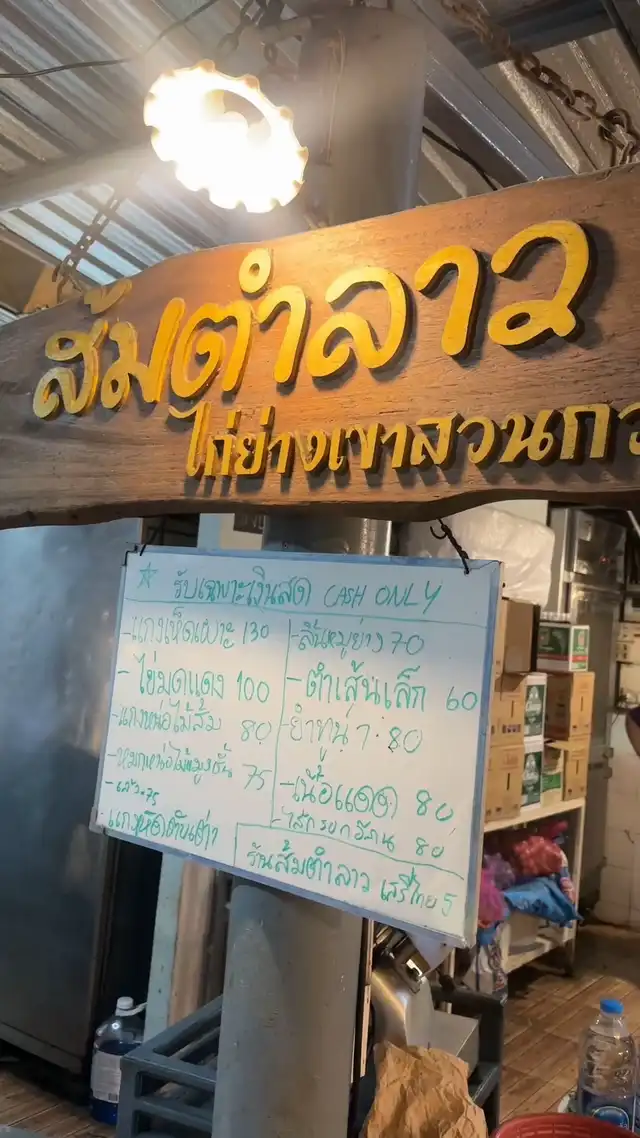 ส้มตำลาว
ไก่ย่างเขาสวนกว
รับเฉพาะเงินสด CASH ONLY
-แกงเห็ดเผาะ 130
- ไข่มดแดง 100
-แกงหน่อไม้ส้ม 80
-หมกหน่อไม้หมูชิ้น 75
- 75
-แกงเห็ด
-ลิ้นหมูย่าง 70
-ตำเส้นเล็ก 60
-ยำทูน่า 80
-เนื้อแดด 80
-ไส้กรอกอีสาน 80
ร้านส้มตำลาว เสรีไทย 5